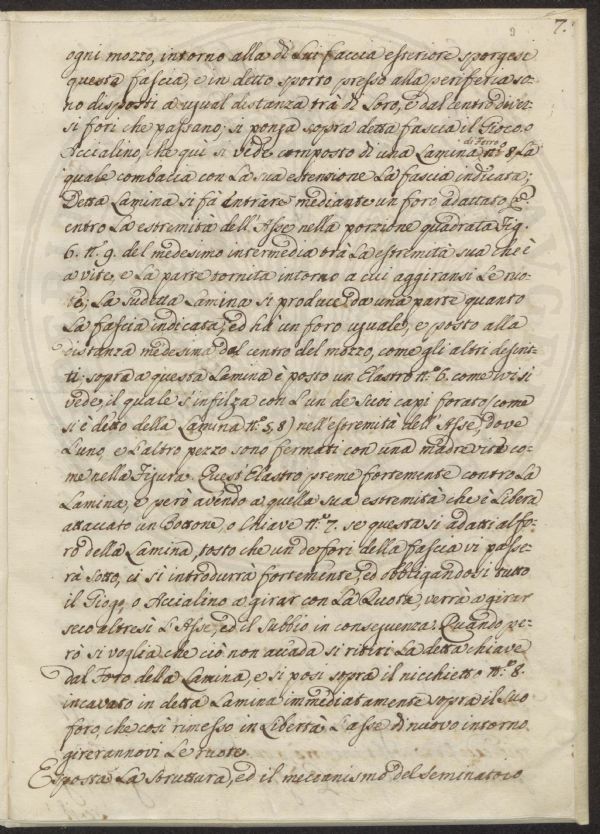 7.
ogni mozzo, intorno alla di Lui faccia esteriore sporgesi
questa fascia, e in detto sporto presso alla periferia so-
no disposti a ugual distanza trà di Loro, e dal centro diver-
si fori che passano; si ponga sopra detta fascia il Giogo, o
di Ferro
Accialino, che quì si vede composto di una Lamina n.º 8, La
quale combacia con La sua estensione La fascia indicata;
Detta Lamina si fà entrare mediante un foro adattato
entro La estremità dell'Asse nella porzione quadrata Fig.
6. n. 9. del medesimo intermedia trà La estremità sua che è
a vite, e La parte tornita intorno a cui aggiransi Le ruo-
te; La sudetta Lamina si produce da una parte quanto
La fascia indicata, ed hà un foro uguale, e posto alla
distanza medesima dal centro del mozzo, come gli altri descrit-
ti; sopra a questa Lamina è posto un Elastro n.º 6. come ivi si
vede, il quale s'infilza con L'un de suoi capi forato (come
si è detto della Lamina n.º 5, 8) nell'estremità dell'Asse, dove
L'uno, e L'altro pezzo sono fermati con una madrevite co-
me nella Figura. Quest'Elastro preme fortemente contro La
Lamina, e però avendo a quella sua estremità che è Libera
attaccato un Bottone, o Chiave n.º 7. se questa si adatti al fo-
ro della Lamina, tosto che un de fori della fascia vi passe-
rà sotto, ci si introdurrà fortemente, ed obbligandosi tutto
il Giogo, o Accialino a girar con La Ruota, verrà a girar
seco altresì L'Asse, ed il Subbio in conseguenza. Quando pe-
rò si voglia che ciò non accada si ritiri La detta chiave
dal Foro della Lamina, e si posi sopra il nicchietto n.º 8.
incavato in detta Lamina immediatamente sopra il suo
foro, che così rimesso in Libertà L'asse di nuovo intorno
girerannovi Le ruote.
Esposta La Struttura, ed il meccanismo del Seminatoio